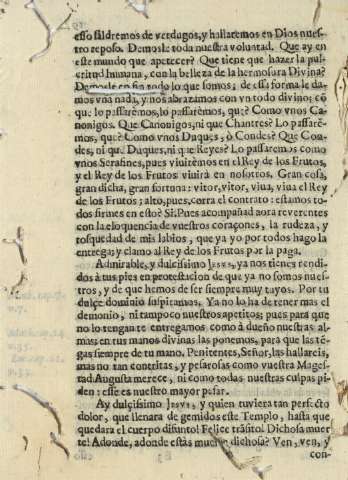 esso saldremos de verdugos, y hallaremos en Dios nues-
tro reposo. Demosle toda nuestra voluntad. Que ay en
este mundo que apetecer? Que tiene que hazer la pul-
critud humana, con la belleza de la hermosura Divina?
Demosle en fin todo lo que somos; de essa forma le da-
mos vna nada, y nos abrazimos con vn todo divino; cō
que lo passaremos, lo passarēmos, què? Como vnos Ca-
nonigos. Que Canonigos, ni que Chantres? Lo passarē-
mos, què? Como vnos Duques, ò Condes? Que Con-
des, ni que Duques, ni que Reyes? Lo passarēmos como
vnos Serafines, pues vivirēmos en el Rey de los Frutos,
y el Rey de los Frutos vivirà en nosotros. Gran cosa,
gran dicha, gran fortuna: vitor, vitor, viva, viva el Rey
de los Frutos; alto, pues, corra el contrato: estamos to-
dos firmes en esto? Si. Pues acompañad aora reverentes
con la eloquencia de vuestros coraçones, la rudeza, y
tosquedad de mis labios, que ya yo por todos hago la
entrega, y clamo al Rey de los Frutos por la paga.
Admirable, y dulcissimo Jesvs, ya nos tienes rendi-
dos à tus pies en protestacion de que ya no somos nues-
tros, y de que hemos de ser siempre muy tuyos. Por tu
dulçe dominio suspiramos. Ya no lo ha de tener mas el
demonio, ni tampoco nuestros apetitos; pues para que
no lo tengan te entregamos como à dueño nuestras al-
mas en tus manos divinas las ponemos, para que las tē-
gas siempre de tu mano. Penitentes, Señor, las hallareis,
mas no tan contritas, y pesarosas como vuestra Mages-
tad Augusta merece, ni como todas nuestras culpas pi-
den: esse es nuestro mayor pesar.
Ay dulçissimo Jesvs, y quien tuviera tan perfecto
dolor, que llenara de gemidos este Templo, hasta que
quedara el cuerpo difunto! Felice trāsito! Dichosa muer-
te! Adonde, adonde estàs muerte dichosa? Ven, ven, y
con-